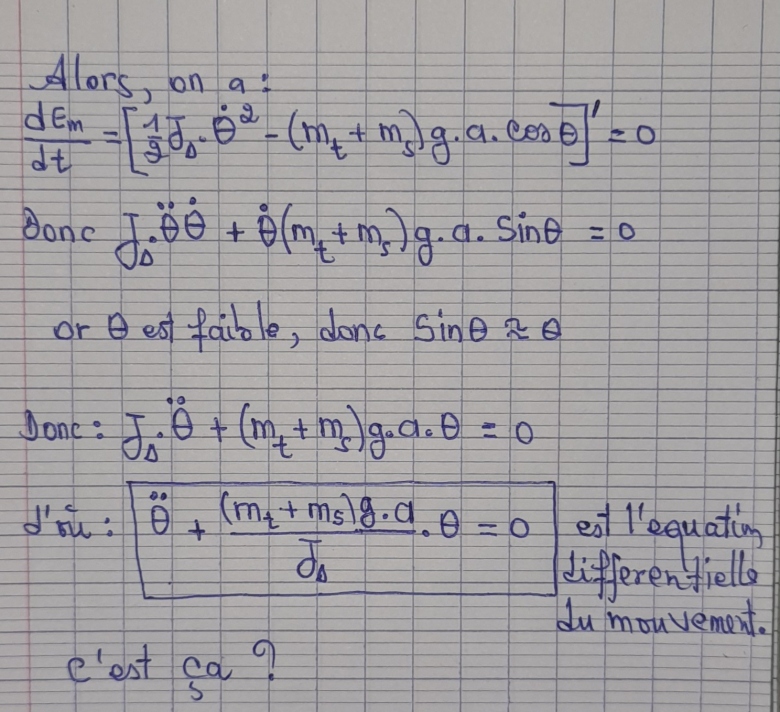 Alors, on a :
dEm/dt = [1/2 J_Δ. θ̇² - (m_t + m_s) g. a. cos θ]' = 0
Donc J_Δ. θ̈ θ̇ + θ̇ (m_t + m_s) g. a. Sinθ = 0
or θ est faible, donc Sinθ ≈ θ
Donc : J_Δ. θ̈ + (m_t + m_s) g. a. θ = 0
d'où : θ̈ + (m_t + m_s) g. a / J_Δ . θ = 0 est l'equation
differentielle
du mouvement.
c'est ça ?